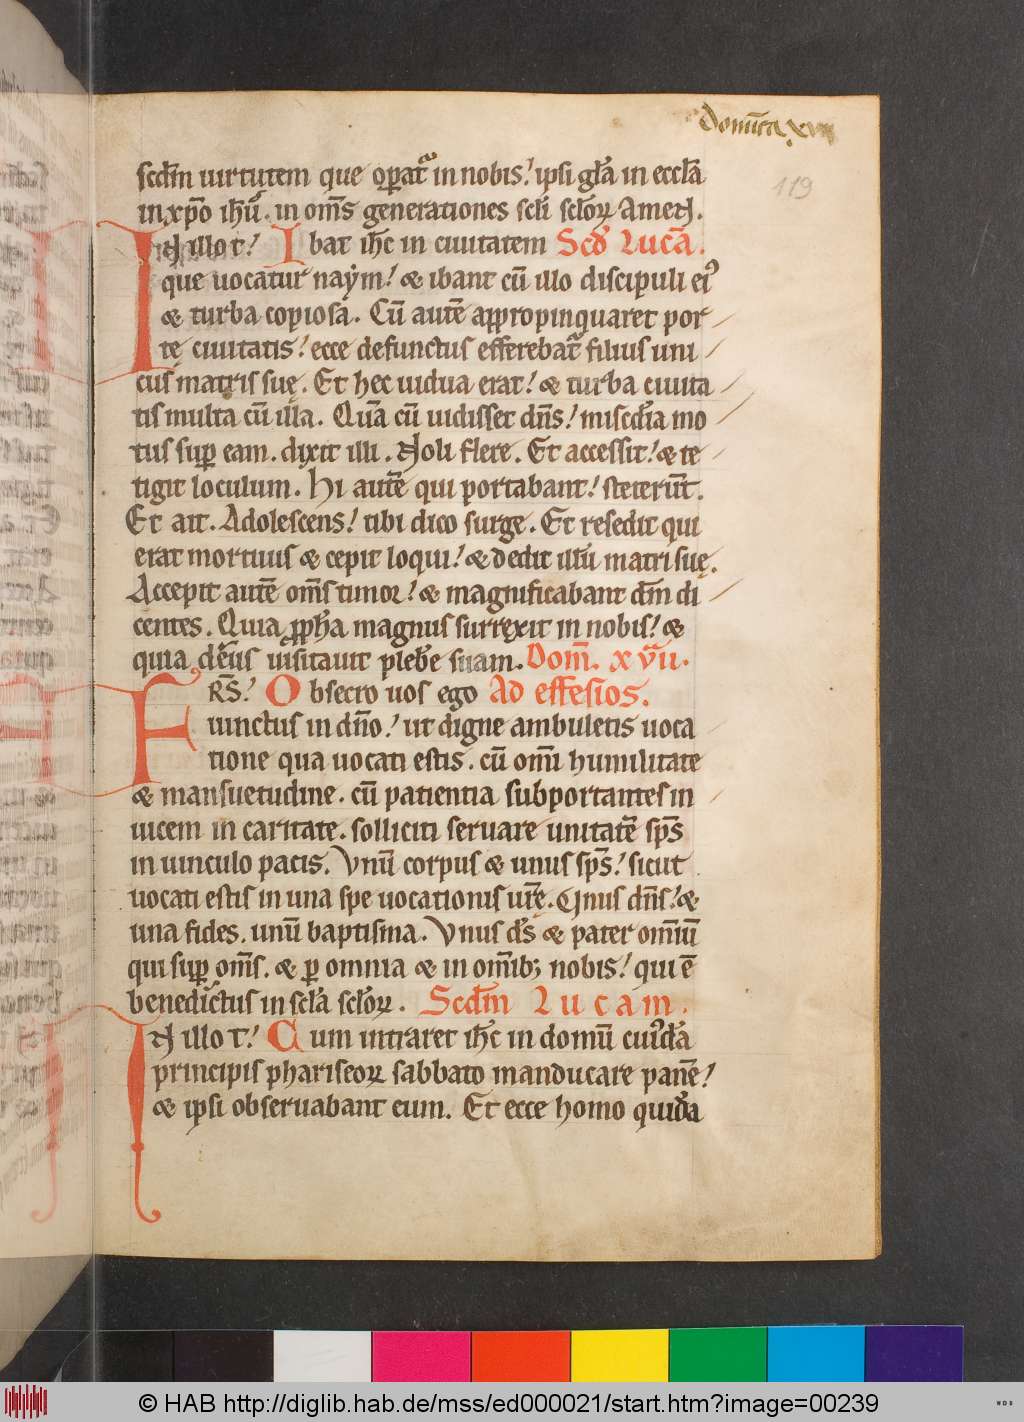 Domīca xvii
119
scd̄m uirtutem que op̲at᷑ in nobis. ipsi gl̄a in eccl̄a
in xp̄o ih̄u. in om̄s generationes scl̄i scl̄oꝝ Amen.
IN illo t̄. Ibat ih̄c in ciuitatem Scd̄ Lucā.
que uocatur naẏm. & ibant cū illo discipuli eiꝰ
& turba copiosa. Cū autē appropinquaret por
tę ciuitatis. ecce defunctus efferebat᷑ filius uni
cus matris suę. Et hec uidua erat. & turba ciuita
tis multa cū illa. Quā cū uidisset dn̄s. misc̄dia mo
tus suꝑ eam. dixit illi. Noli flere. Et accessit. & te
tigit loculum. Hi autē qui portabant. steterūt.
Et ait. Adolescens. tibi dico surge. Et resedit qui
erat mortuus & cepit loqui. & dedit illū matri suę.
Accepit autē om̄s timor. & magnificabant dm̄ di
centes. Quia ꝓph̄a magnus surrexit in nobis. &
quia deus uisitauit plebē suam. Dom̄. xvii.
FRS̄. Obsecro uos ego Ad effesios.
uinctus in dn̄o. ut digne ambuletis uoca
tione qua uocati estis. cū om̄i humilitate
& mansuetudine. cū patientia subportantes in
uicem in caritate. solliciti seruare unitatē sp̄s
in uinculo pacis. Vnū corpus & unus sp̄s. sicut
uocati estis in una spe uocationis ur̄ę. Vnus dn̄s. &
una fides. unū baptisma. Vnus d̄s & pater omīū
qui suꝑ om̄s. & ꝑ omnia & in om̄ib; nobis. qui ē
benedictus in scl̄a scl̄oꝝ. Scd̄m Lucam.
IN illo t̄. Cum intraret ih̄c in domū cuiꝰdā
principis phariseoꝝ sabbato manducare panē.
& ipsi obseruabant eum. Et ecce homo quidā
© HAB http://diglib.hab.de/mss/ed000021/start.htm?image=00239